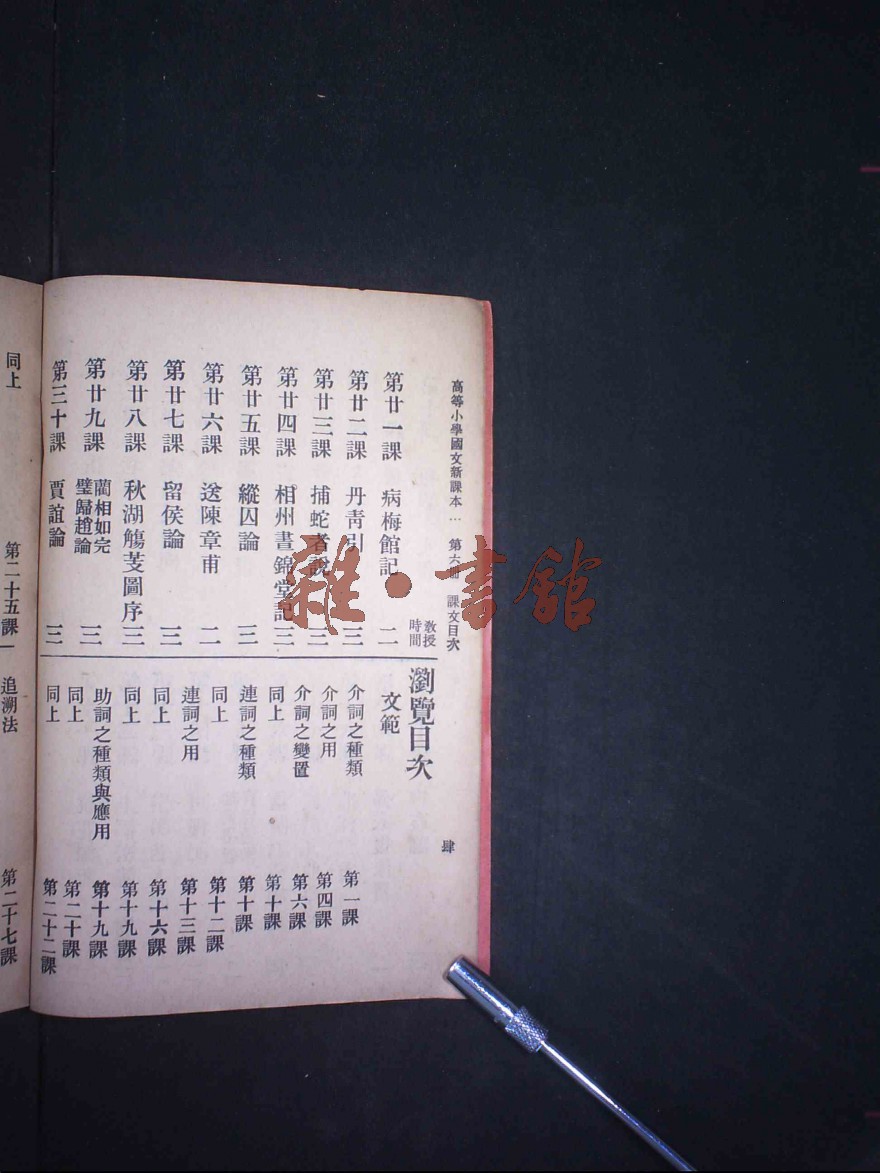 高等小學國文新課本… 第六冊 課文目次
肆
教授時間
第廿一課 病梅館記 二
第廿二課 丹青引 三
第廿三課 捕蛇者說 三
第廿四課 相州晝錦堂記 三
第廿五課 縱囚論 三
第廿六課 送陳章甫 二
第廿七課 留侯論 三
第廿八課 秋湖觴芰圖序 三
第廿九課 藺相如完璧歸趙論 三
第三十課 賈誼論 三
瀏覽目次
文範
介詞之種類 第一課
介詞之用 第四課
介詞之變置 第六課
同上 第十課
連詞之種類 第十課
同上 第十二課
連詞之用 第十三課
同上 第十六課
同上 第十九課
助詞之種類與應用 第十九課
同上 第二十課
同上 第二十二課
同上 第二十五課
追溯法 第二十七課
雜·書館